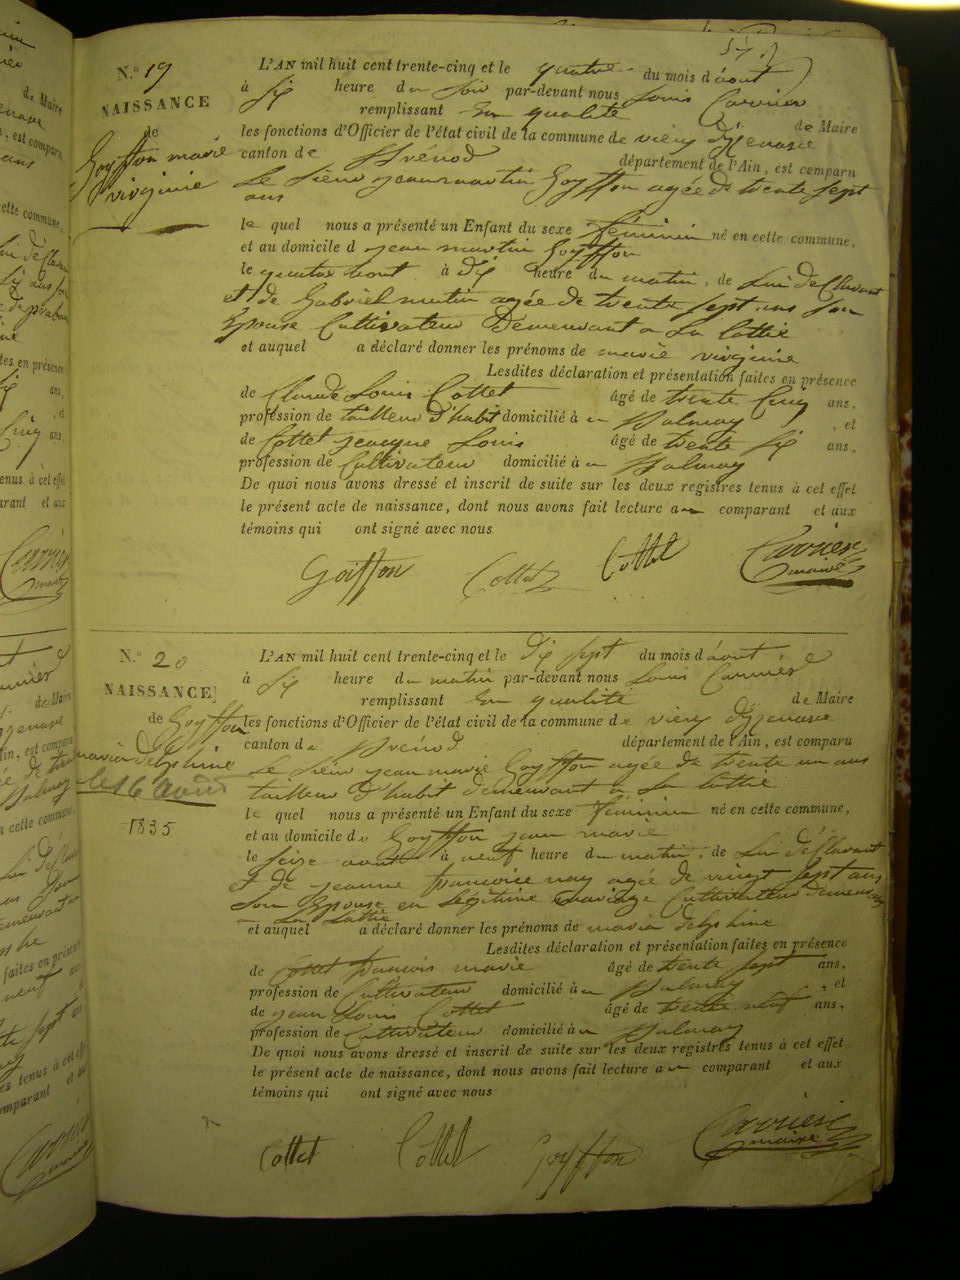 N.º 19
NAISSANCE
de
Goyffon marie
virginie
L'AN mil huit cent trente-cinq et le quatre du mois d'août
à six heure du soir par-devant nous Louis Carrier
remplissant en qualité de Maire
les fonctions d'Officier de l'état civil de la commune de vieu d'izenave
canton de Brénod département de l'Ain, est comparu
le sieur jean martin Goyffon agée de trente sept
ans
le quel nous a présenté un Enfant du sexe féminin né en cette commune,
et au domicile d jean martin Goyffon
le quatre aout à dix heure du matin, de lui déclarant
et de Gabriel mutin agée de trente sept ans son
Epouse Cultivateur demeurant a La
et auquel a déclaré donner les prénoms de marie virginie
Lesdites déclaration et présentation faites en présence
de Claude Louis Cottet âgé de trente cinq ans,
profession de tailleur d'habit domicilié à, et
de Cottet jeacque Louis âgé de trente six ans,
profession de Cultivateur domicilié à
De quoi nous avons dressé et inscrit de suite sur les deux registres tenus à cet effet
le présent acte de naissance, dont nous avons fait lecture au comparant et aux
témoins qui ont signé avec nous
Goiffon Cottet Cottet Carrier
maire
N.º 20
NAISSANCE
de Goyffon
maria delphine
le 16 août
1835
L'AN mil huit cent trente-cinq et le dix sept du mois d'août
à six heure du matin par-devant nous Louis Carrier
remplissant en qualité de Maire
les fonctions d'Officier de l'état civil de la commune de vieu d'izenave
canton de Brénod département de l'Ain, est comparu
le sieur jean marie Goyffon agée de trente un ans
tailleur d'habit demeurant a La
le quel nous a présenté un Enfant du sexe féminin né en cette commune,
et au domicile de Goyffon jean marie
le seise aout à neuf heure du matin, de lui déclarant
et de jeanne francoise nay agée de vingt sept ans
son Epouse en légitime mariage Cultivateur demeurant
a La
et auquel a déclaré donner les prénoms de maria delphine
Lesdites déclaration et présentation faites en présence
de Cottet francois marie âgé de trente sept ans,
profession de Cultivateur domicilié à, et
de jean Louis Cottet âgé de trente neuf ans,
profession de Cultivateur domicilié à
De quoi nous avons dressé et inscrit de suite sur les deux registres tenus à cet effet
le présent acte de naissance, dont nous avons fait lecture au comparant et aux
témoins qui ont signé avec nous
Cottet Cottet Goyffon Carrier
maire